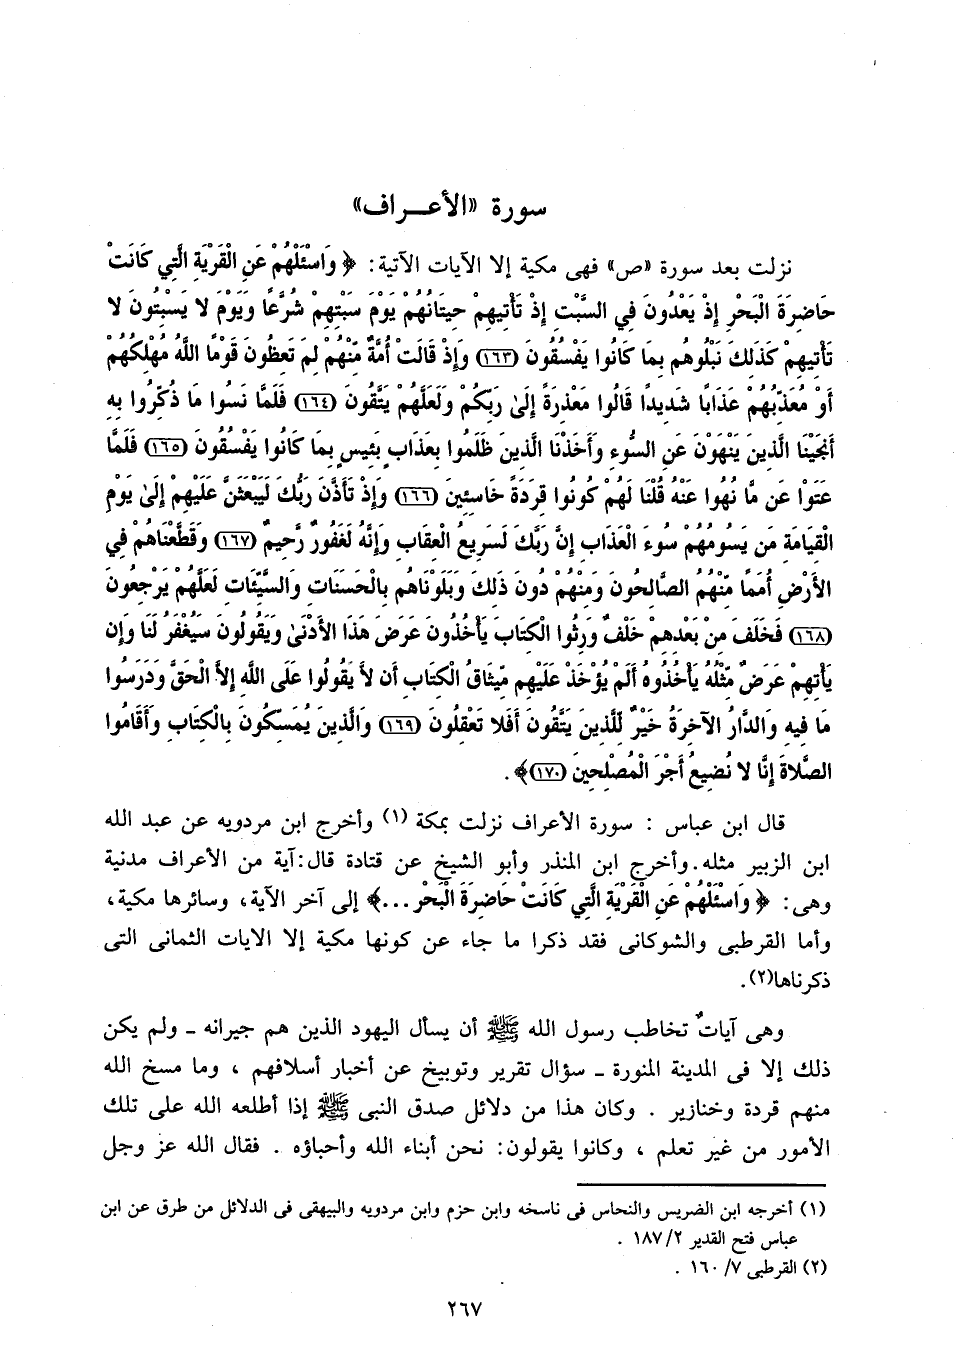 سورة «الأعـــراف»
نزلت بعد سورة «ص» فهى مكية إلا الآيات الآتية: ﴿ وَاسْئَلْهُمْ عَنِ الْقَرْيَةِ الَّتِي كَانَتْ
حَاضِرَةَ الْبَحْرِ إِذْ يَعْدُونَ فِي السَّبْتِ إِذْ تَأْتِيهِمْ حِيتَانُهُمْ يَوْمَ سَبْتِهِمْ شُرَّعًا وَيَوْمَ لا يَسْبِتُونَ لا
تَأْتِيهِمْ كَذَلِكَ نَبْلُوهُم بِمَا كَانُوا يَفْسُقُونَ (١٦٣) وَإِذْ قَالَتْ أُمَّةٌ مِّنْهُمْ لِمَ تَعِظُونَ قَوْمًا اللَّهُ مُهْلِكُهُمْ
أَوْ مُعَذِّبُهُمْ عَذَابًا شَدِيدًا قَالُوا مَعْذِرَةً إِلَىٰ رَبِّكُمْ وَلَعَلَّهُمْ يَتَّقُونَ (١٦٤) فَلَمَّا نَسُوا مَا ذُكِّرُوا بِهِ
أَنجَيْنَا الَّذِينَ يَنْهَوْنَ عَنِ السُّوءِ وَأَخَذْنَا الَّذِينَ ظَلَمُوا بِعَذَابٍ بَئِيسٍ بِمَا كَانُوا يَفْسُقُونَ (١٦٥) فَلَمَّا
عَتَوْا عَن مَّا نُهُوا عَنْهُ قُلْنَا لَهُمْ كُونُوا قِرَدَةً خَاسِئِينَ (١٦٦) وَإِذْ تَأَذَّنَ رَبُّكَ لَيَبْعَثَنَّ عَلَيْهِمْ إِلَىٰ يَوْمِ
الْقِيَامَةِ مَن يَسُومُهُمْ سُوءَ الْعَذَابِ إِنَّ رَبَّكَ لَسَرِيعُ الْعِقَابِ وَإِنَّهُ لَغَفُورٌ رَّحِيمٌ (١٦٧) وَقَطَّعْنَاهُمْ فِي
الأَرْضِ أُمَمًا مِّنْهُمُ الصَّالِحُونَ وَمِنْهُمْ دُونَ ذَلِكَ وَبَلَوْنَاهُم بِالْحَسَنَاتِ وَالسَّيِّئَاتِ لَعَلَّهُمْ يَرْجِعُونَ
(١٦٨) فَخَلَفَ مِنْ بَعْدِهِمْ خَلْفٌ وَرِثُوا الْكِتَابَ يَأْخُذُونَ عَرَضَ هَذَا الأَدْنَىٰ وَيَقُولُونَ سَيُغْفَرُ لَنَا وَإِن
يَأْتِهِمْ عَرَضٌ مِّثْلُهُ يَأْخُذُوهُ أَلَمْ يُؤْخَذْ عَلَيْهِم مِّيثَاقُ الْكِتَابِ أَن لاَ يَقُولُوا عَلَى اللَّهِ إِلاَّ الْحَقَّ وَدَرَسُوا
مَا فِيهِ وَالدَّارُ الآخِرَةُ خَيْرٌ لِّلَّذِينَ يَتَّقُونَ أَفَلا تَعْقِلُونَ (١٦٩) وَالَّذِينَ يُمَسِّكُونَ بِالْكِتَابِ وَأَقَامُوا
الصَّلاةَ إِنَّا لا نُضِيعُ أَجْرَ الْمُصْلِحِينَ (١٧٠)﴾ .
قال ابن عباس : سورة الأعراف نزلت بمكة (١) وأخرج ابن مردويه عن عبد الله
ابن الزبير مثله.وأخرج ابن المنذر وأبو الشيخ عن قتادة قال:آية من الأعراف مدنية
وهى: ﴿ وَاسْئَلْهُمْ عَنِ الْقَرْيَةِ الَّتِي كَانَتْ حَاضِرَةَ الْبَحْرِ ...﴾ إلى آخر الآية، وسائرها مكية،
وأما القرطبى والشوكانى فقد ذكرا ما جاء عن كونها مكية إلا الايات الثمانى التى
ذكرناها(٢).
وهى آياتٌ تخاطب رسول الله ﷺ أن يسأل اليهود الذين هم جيرانه ـ ولم يكن
ذلك إلا فى المدينة المنورة ـ سؤال تقرير وتوبيخ عن أخبار أسلافهم ، وما مسخ الله
منهم قردة وخنازير . وكان هذا من دلائل صدق النبى ﷺ إذا أطلعه الله على تلك
الأمور من غير تعلم ، وكانوا يقولون: نحن أبناء الله وأحباؤه . فقال الله عز وجل
(١) أخرجه ابن الضريس والنحاس فى ناسخه وابن حزم وابن مردويه والبيهقى فى الدلائل من طرق عن ابن
عباس فتح القدير ٢/ ١٨٧ .
(٢) القرطبى ٧/ ١٦٠ .
٢٦٧